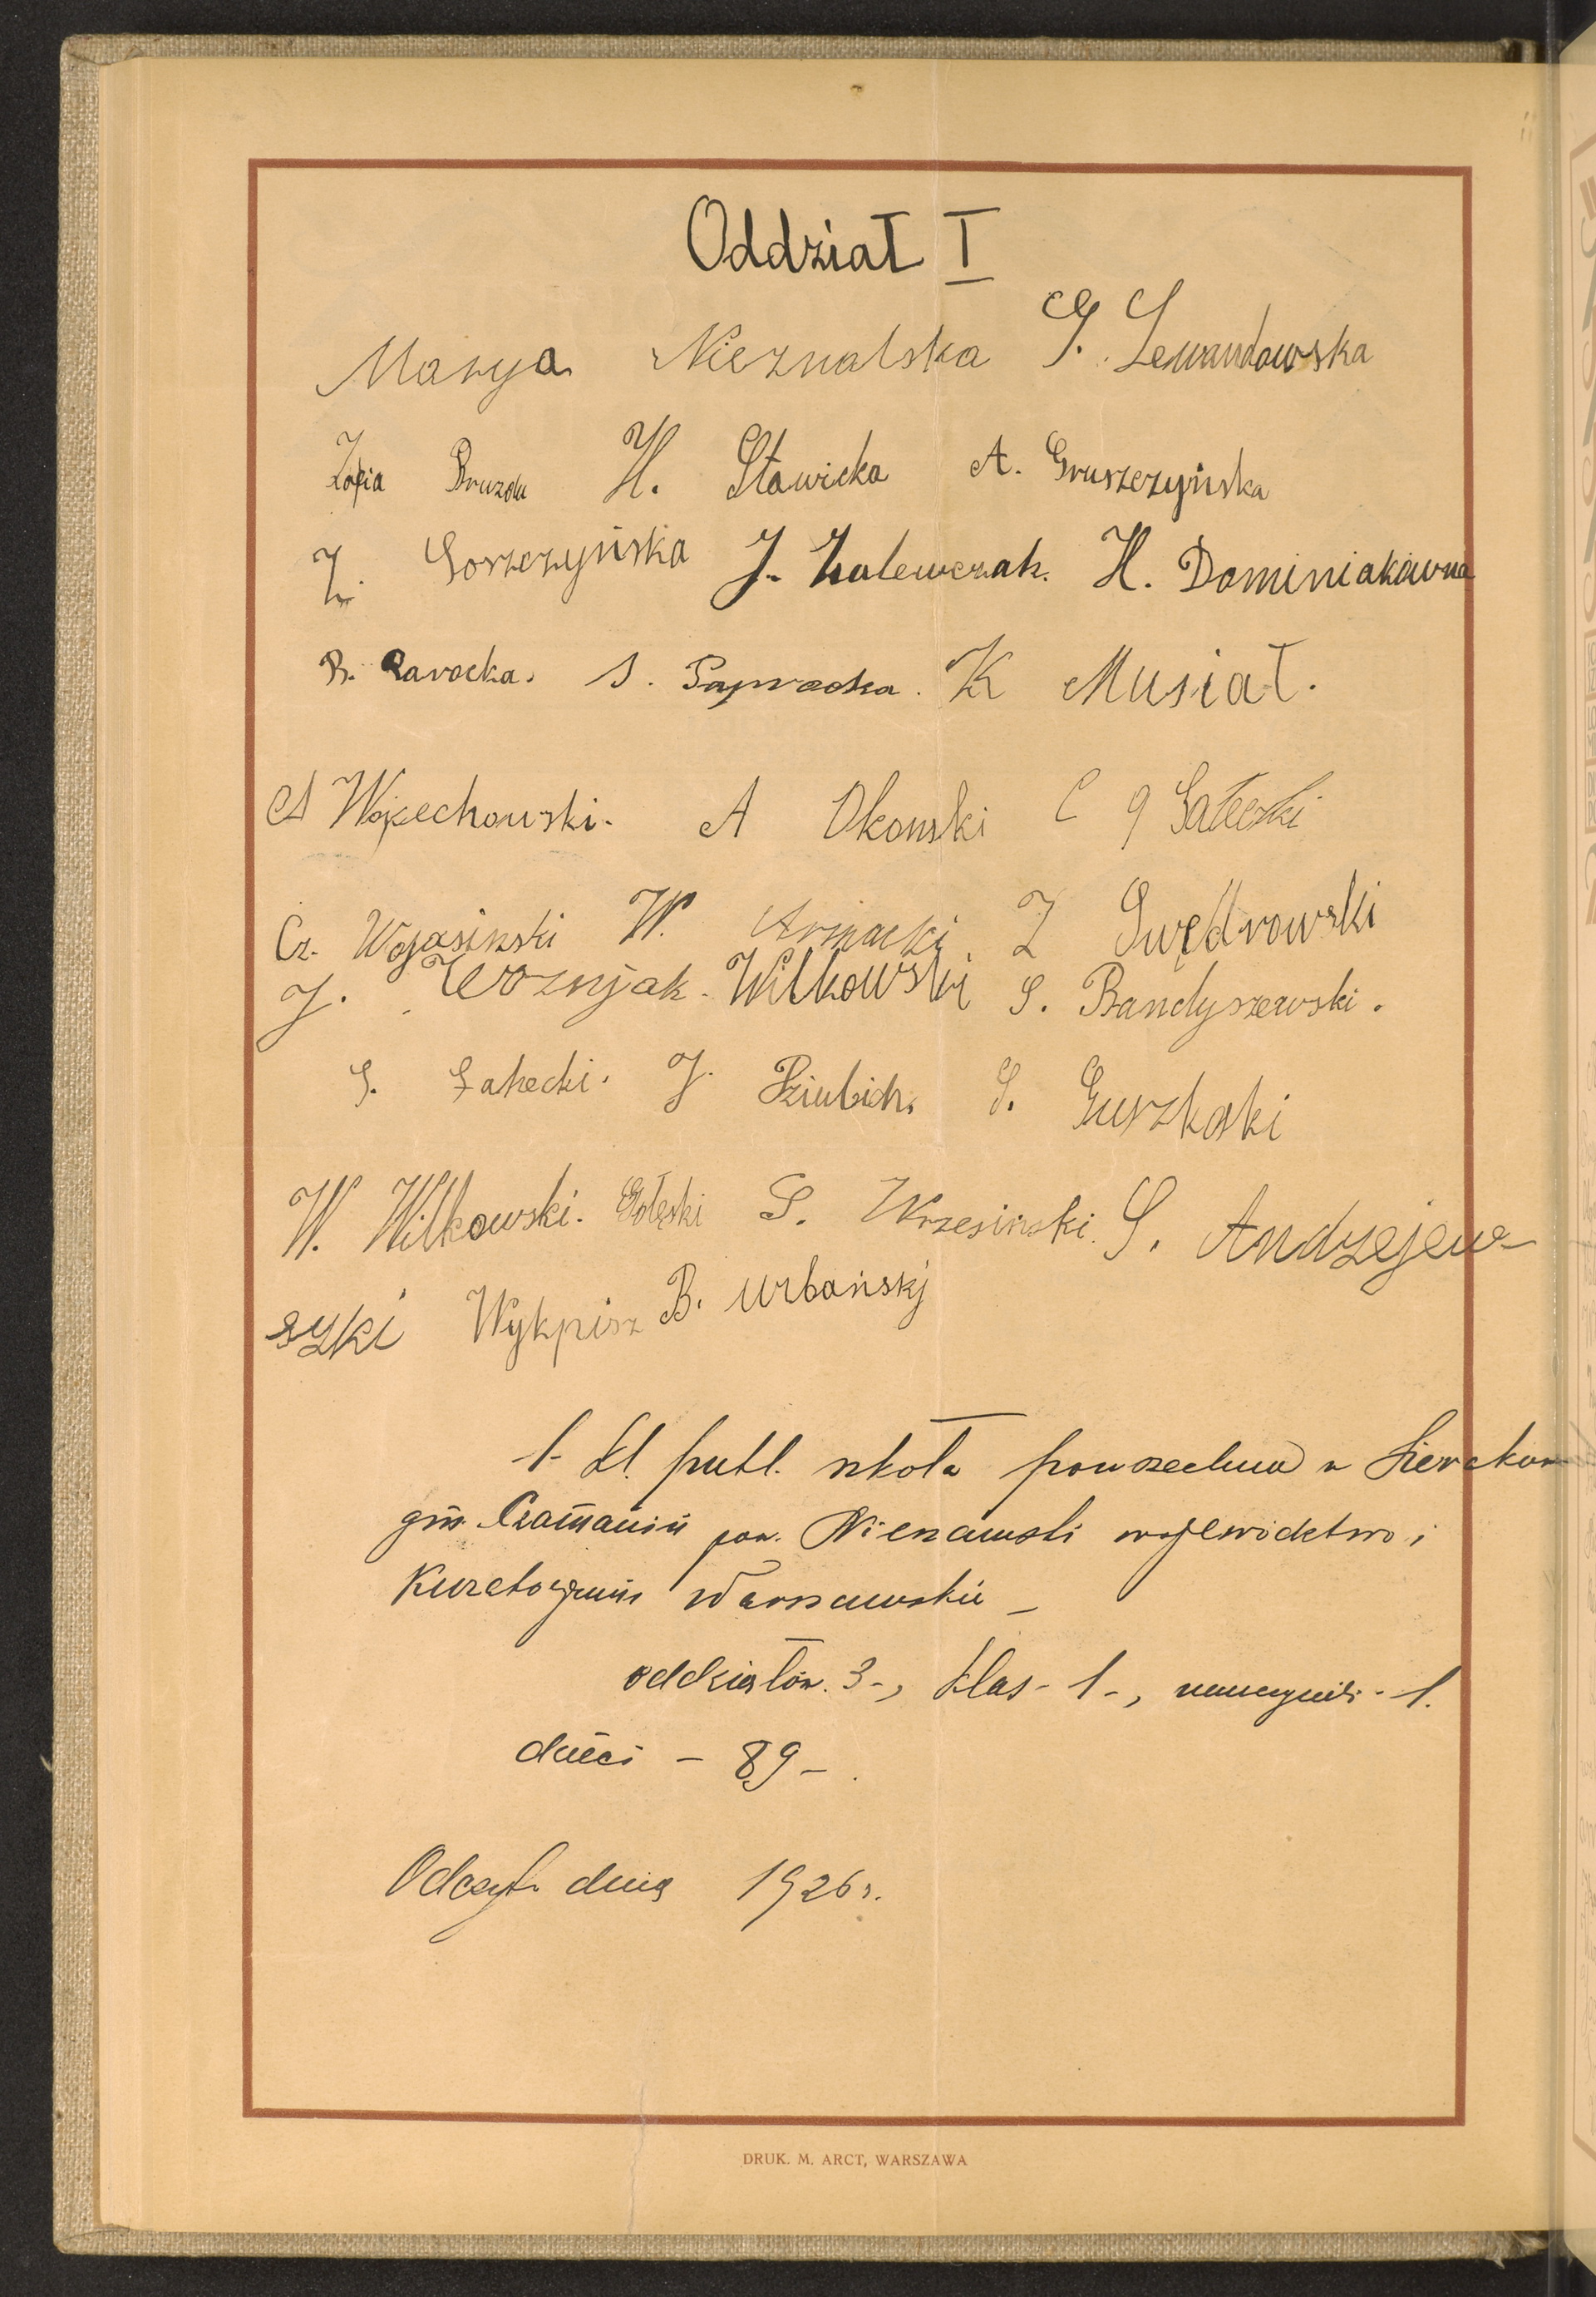 Oddział I
Marya Nieznalska G. Lewandowska
Zofia Bruzda H. Stawicka A. Gruszczyńska
Z. Goszczyńska J. Zalewczak. H. Dominiakówna
R. Rarocka. S. Paprocka. K Musiał.
A Wojcechowski. A Okonski C Gałecki
Cz. Wojasinski W. Z Swędrowski
J. Woznjak. Wilkowski S. Bandyszewski.
S. Łakecki. J. S. Guszkaki
W. Wilkowski. Gołęski S. Wrzesinski. S. Andzejew-
syki Wykpisz B. Urbańskj
1- kl. publ. szkoła powszechna w
gm. Czamanin pow. Nieszawski województwo i
Kuratorjum Warszawskie –
oddziałów. 3-, klas- 1-, nauczycieli- 1.
dzieci – 89 – .
Odczyt. dnia 1926 r.
DRUK. M. ARCT, WARSZAWA